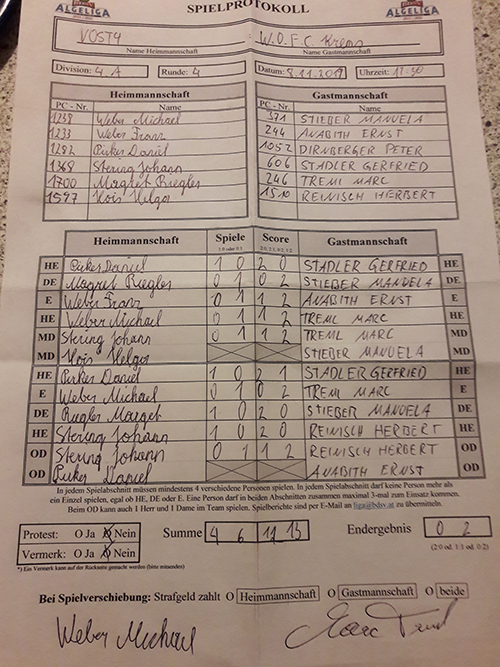 ALGELIGA SPIELPROTOKOLL ALGELIGA
VOST4 : W.D.F.C. Krems
Name Heimmannschaft Name Gastmannschaft
Division: 4.A Runde: 4 Datum: 8.11.2019 Uhrzeit:
Heimmannschaft Gastmannschaft
PC - Nr. Name PC - Nr. Name
1238 Weber Michael 371 STIEBER MANUELA
1233 Weber Franz 244 ANABITH ERNST
1282 Pirker Daniel 1052 DIRNBERGER PETER
1368 Stering Johann 606 STADLER GERFRIED
1700 Magret Riegler 246 TREML MARC
1597 Helga 1510 REINISCH HERBERT
Heimmannschaft Spiele Score Gastmannschaft
1:0 oder 0:1 2:0, 2:1, 0:2, 1:2
HE Pirker Daniel 1 0 2 0 STADLER GERFRIED HE
DE Magret Riegler 0 1 0 2 STIEBER MANUELA DE
E Weber Franz 0 1 1 2 ANABITH ERNST E
HE Weber Michael 0 1 1 2 TREML MARC HE
MD Stering Johann 0 1 1 2 TREML MARC MD
MD Helga STIEBER MANUELA MD
HE Pirker Daniel 1 0 2 1 STADLER GERFRIED HE
E Weber Michael 0 1 0 2 TREML MARC E
DE Riegler Magret 1 0 2 0 STIEBER MANUELA DE
HE Stering Johann 1 0 2 0 REINISCH HERBERT HE
OD Stering Johann 0 1 1 2 REINISCH HERBERT OD
OD Pirker Daniel ANABITH ERNST OD
In jedem Spielabschnitt müssen mindestens 4 verschiedene Personen spielen. In jedem Spielabschnitt darf keine Person mehr als
ein Einzel spielen, egal ob HE, DE oder E. Eine Person darf in beiden Abschnitten zusammen maximal 3-mal zum Einsatz kommen.
Beim OD kann auch 1 Herr und 1 Dame im Team spielen. Spielberichte sind per E-Mail an liga@bdsv.at zu übermitteln.
Protest: O Ja O Nein Summe 4 6 11 13 Endergebnis 0 2
Vermerk: O Ja O Nein (2:0 od. 1:1 od. 0:2)
*) Ein Vermerk kann auf der Rückseite gemacht werden (bitte umseitig)
Bei Spielverschiebung: Strafgeld zahlt O Heimmannschaft O Gastmannschaft O beide
Weber Michael Marc